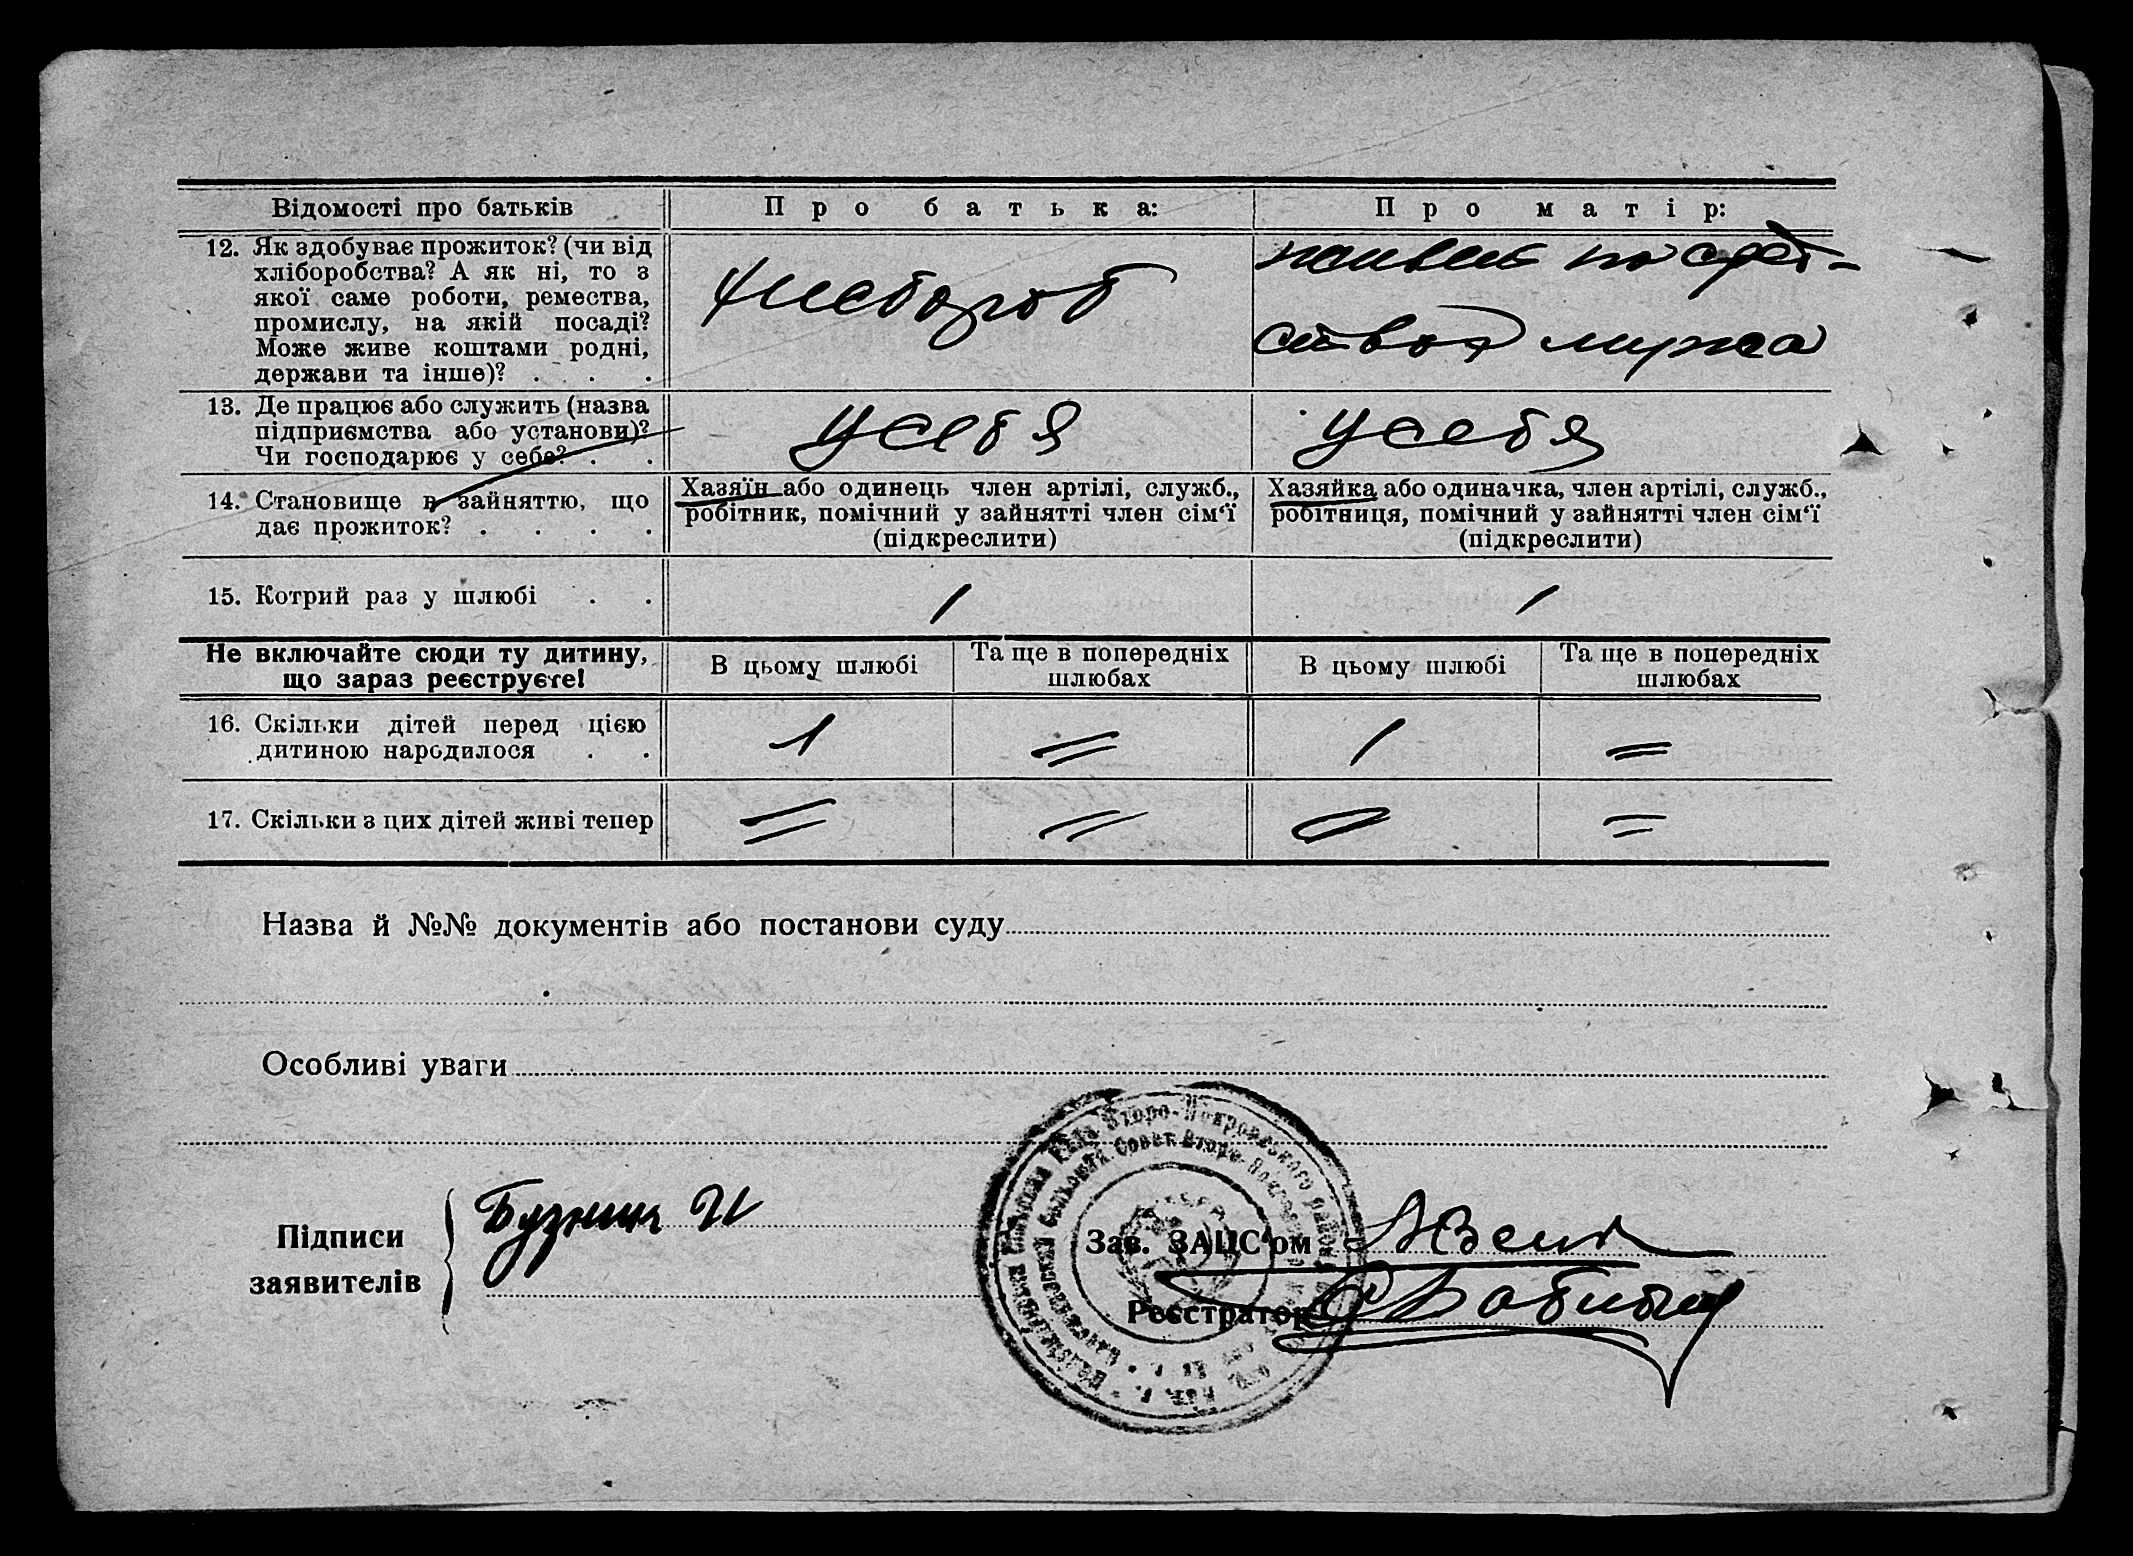 Відомості про батьків
Про батька:
Про матір:
12. Як здобуває прожиток? (чи від
хліборобства? А як ні, то з
якої саме роботи, ремества,
промислу, на якій посаді?
Може живе коштами родні,
держави та інше)? . . .
хлебороб
живет на сред-
ства мужа
13. Де працює або служить (назва
підприємства або установи)?
Чи господарює у себе? . .
у себя
у себя
14. Становище в зайняттю, що
дає прожиток? . . . .
Хазяїн або одинець член артілі, служб.,
робітник, помічний у зайнятті член сім‘ї
(підкреслити)
Хазяйка або одиначка, член артілі, служб.,
робітниця, помічний у зайнятті член сім‘ї
(підкреслити)
15. Котрий раз у шлюбі . .
1
1
Не включайте сюди ту дитину,
що зараз реєструєте!
В цьому шлюбі
Та ще в попередніх
шлюбах
В цьому шлюбі
Та ще в попередніх
шлюбах
16. Скільки дітей перед цією
дитиною народилося . .
1
=
1
=
17. Скільки з цих дітей живі тепер
=
=
0
=
Назва й №№ документів або постанови суду
Особливі уваги
Підписи
заявителів
Бузник И
Зав. ЗАЦС‘ом
Реєстратор
Второ-Покровського району